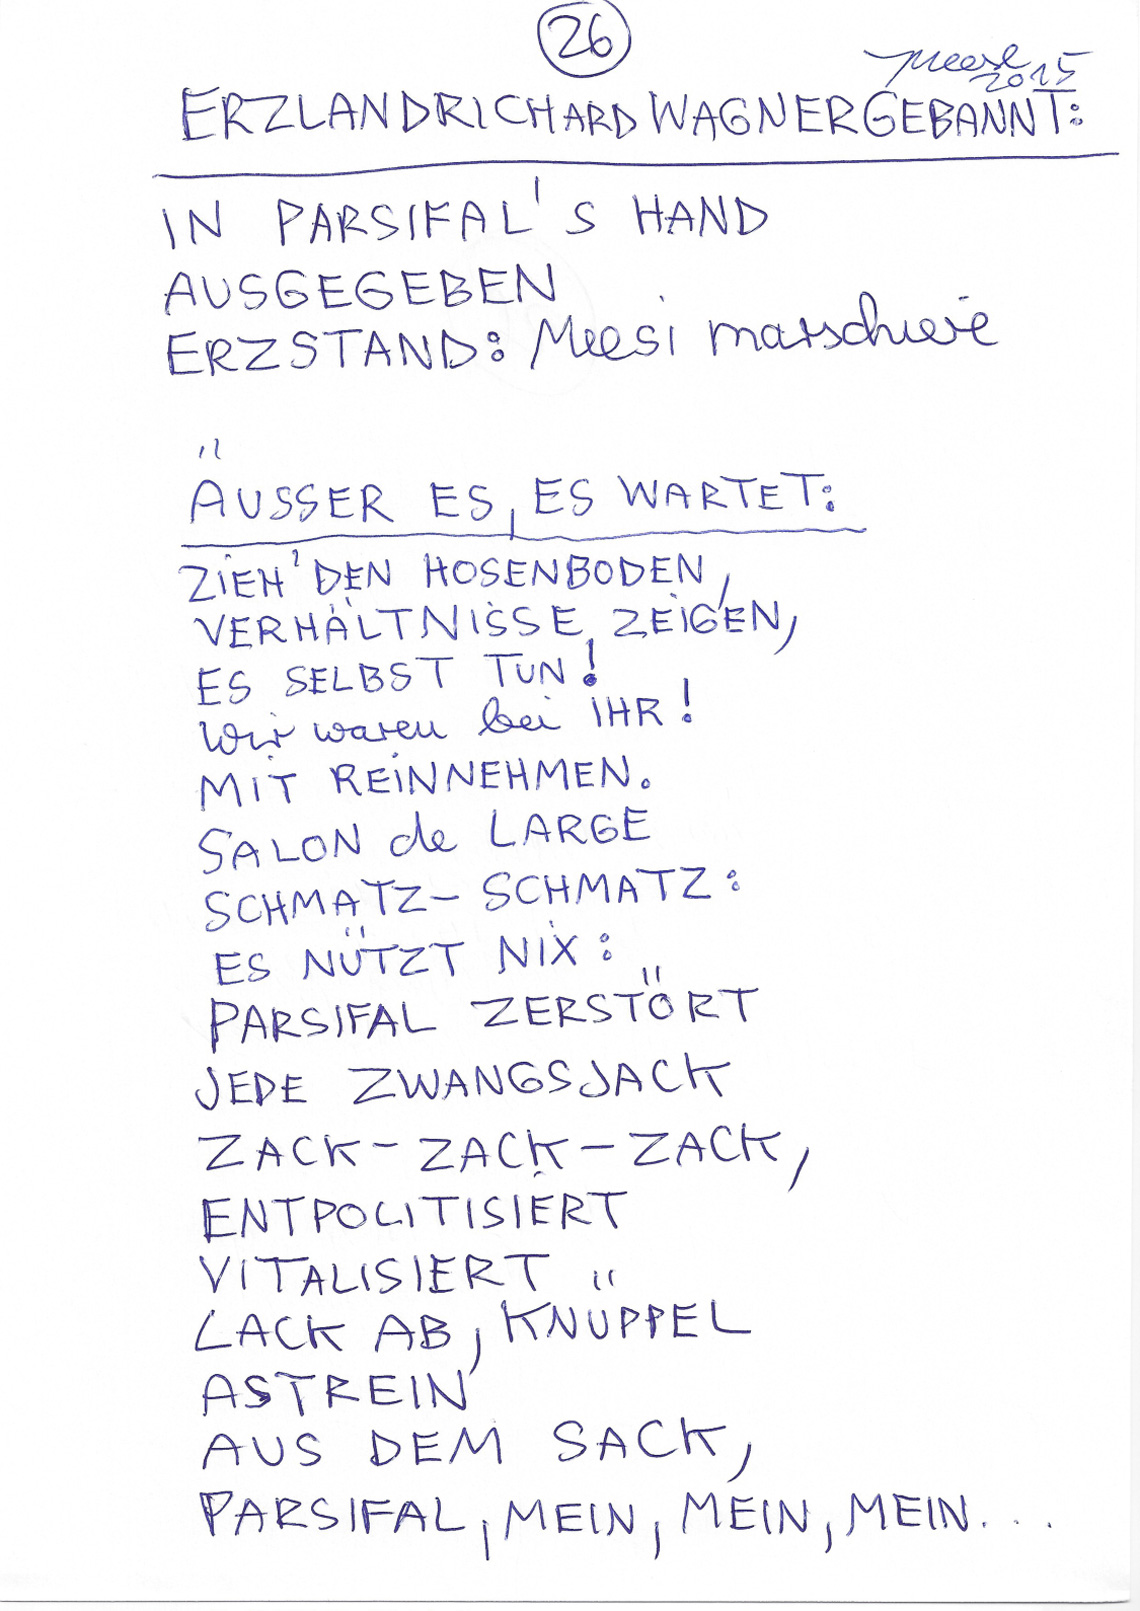 26
Meese
2015
ERZLANDRICHARDWAGNERGEBANNT:
IN PARSIFAL'S HAND
AUSGEGEBEN
ERZSTAND: Meesi marschiere
ÄUSSER ES, ES WARTET:
ZIEH' DEN HOSENBODEN,
VERHÄLTNISSE ZEIGEN,
ES SELBST TUN!
Wir waren bei IHR!
MIT REINNEHMEN.
SALON de LARGE
SCHMATZ-SCHMATZ:
ES NÜTZT NIX:
PARSIFAL ZERSTÖRT
JEDE ZWANGSJACK
ZACK-ZACK-ZACK,
ENTPOLITISIERT
VITALISIERT
LACK AB, KNÜPPEL
ASTREIN
AUS DEM SACK,
PARSIFAL, MEIN, MEIN, MEIN...